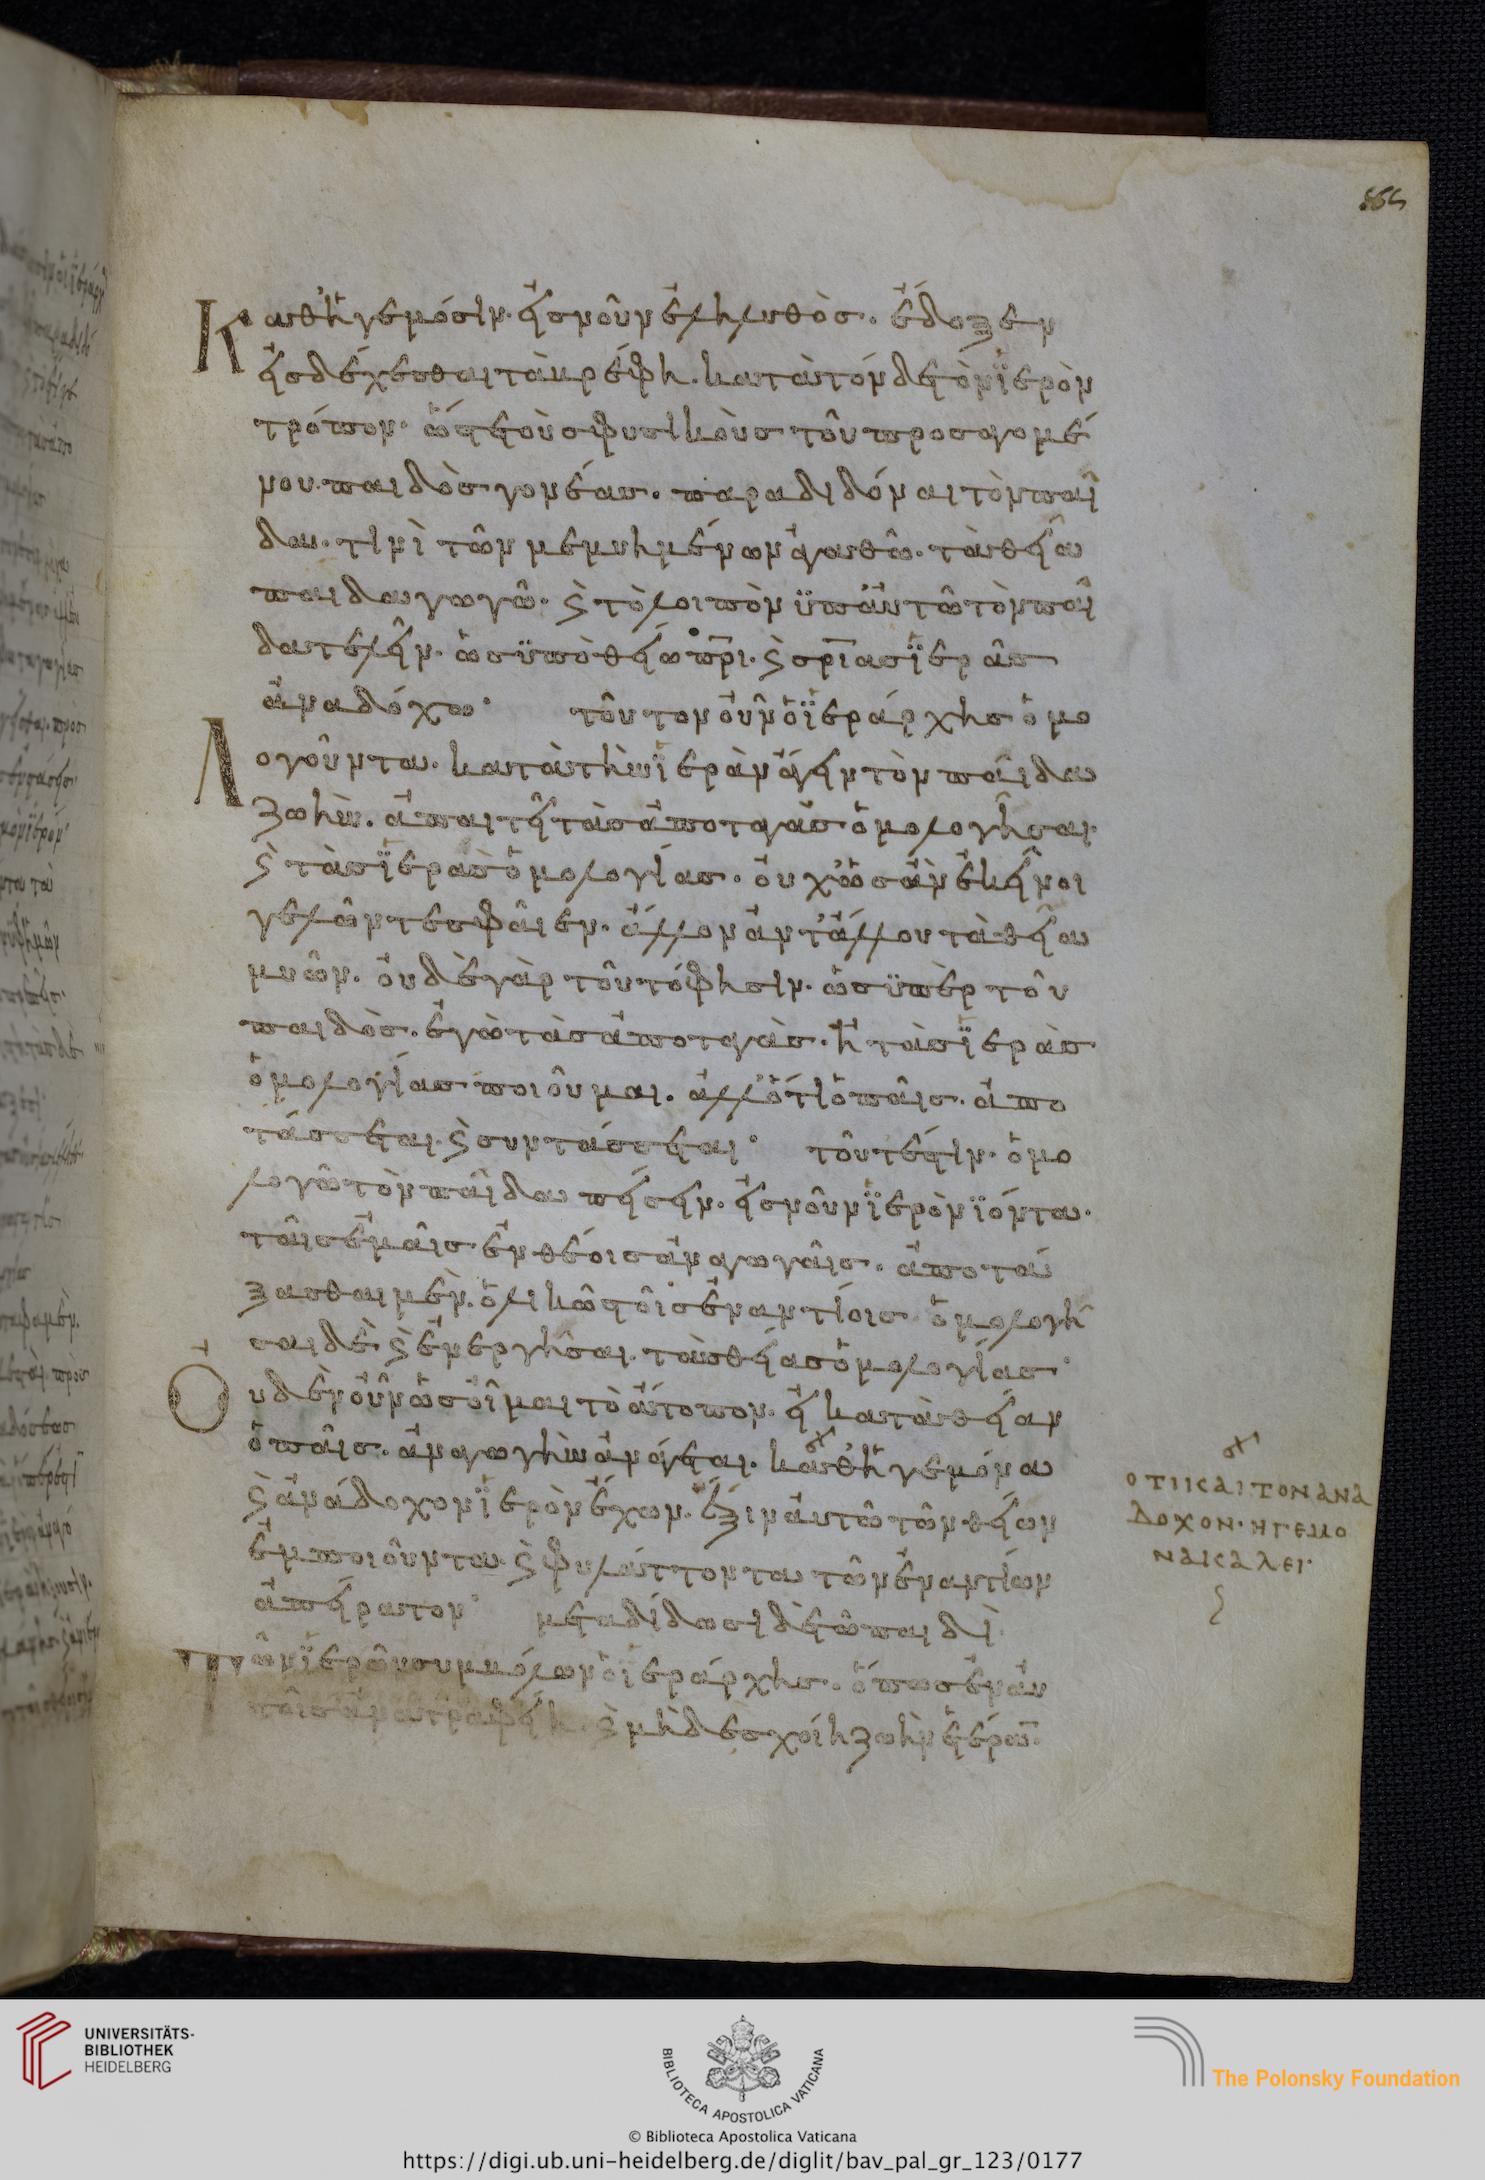 865
Καθηγεμόσιν. εἰς νοῦν ἐληλυθὸς. ἔδοξεν
εἰσδέχεσθαι τὰ βρέφη. κατὰ τόνδε τὸν ϊερὸν
τρόπον. ὥστε τοὺς φυσικοὺς τοῦ προσαγομέ
νου παιδὸς γονέας. παραδιδόναι τὸν παῖ
δα. τινὶ τῶν μεμυημένων ἀγαθῶ. τὰ θεῖα
παιδαγωγῶ. ϗ τὸ λοιπὸν ϋπ' αὐτῶ τὸν παῖ
δα τελεῖν. ὡς ϋπὸ θείω πρι. ϗ σρίας ϊερᾶς
ἀναδόχω. τοῦτον οὖν ὁ ϊεράρχης ὁμο
Λογοῦντα. κατὰ τὴν ϊερὰν ἄγειν τὸν παῖδα
ζωὴν. ἀπαιτεῖ τὰς ἀποταγὰς ὁμολογῆσαι.
ϗ τὰς ϊερὰς ὁμολογίας. οὐχ ὡς ἂν ἐκεῖνοι
γελῶντες φαῖεν. ἄλλον ἀντ' ἄλλου τὰ θεῖα
μυῶν. οὐδὲ γὰρ τοῦτό φησιν. ὡς ϋπὲρ τοῦ
παιδὸς. ἐγὼ τὰς ἀποταγὰς. ἢ τὰς ϊερὰς
ὁμολογίας ποιοῦμαι. ἀλλ' ὅτι ὁ παῖς. ἀπο
τάσσεται. ϗ συντάσσεται. τοῦτέστιν. ὁμο
λογῶ τὸν παῖδα πείσειν. εἰς νοῦν ϊερὸν ϊόντα.
ταῖς ἐμαῖς ἐνθέοις ἀναγωγαῖς. ἀποτά
ξασθαι μὲν. ὁλικῶς τοῖς ἐναντίοις ὁμολογῆ
σαι δὲ ϗ ἐνεργῆσαι. τὰς θείας ὁμολογίας.
Οὐδὲν οὖν ὡς οἶμαι τὸ ἄτοπον. εἰ κατὰ θείαν
ὁ παῖς. ἀναγωγὴν ἀνάγεται. καθηγεμόνα
ϗ ἀνάδοχον ϊερὸν ἔχων. ἕξιν αὐτῶ τῶν θείων
ἐμποιοῦντα. ϗ φυλάττοντα τῶν ἐναντίων
ἀπείρατον. μεταδίδωσι δὲ τῶ παιδὶ
Τῶν ϊερῶν συμβόλων ὁ ϊεράρχης. ὅπως ἐν αὐ
τοῖς ἀνατραφείη. ϗ μὴδὲ σχοίη ζωὴν ἑτέραν.
ΟΤΙ ΚΑΙ ΤΟΝ ΑΝΑ
ΔΟΧΟΝ. ΗΓΕΜΟ
ΝΑ ΚΑΛΕΙ.
UNIVERSITÄTS-
BIBLIOTHEK
HEIDELBERG
BIBLIOTECA APOSTOLICA VATICANA
The Polonsky Foundation
© Biblioteca Apostolica Vaticana
https://digi.ub.uni-heidelberg.de/diglit/bav_pal_gr_123/0177